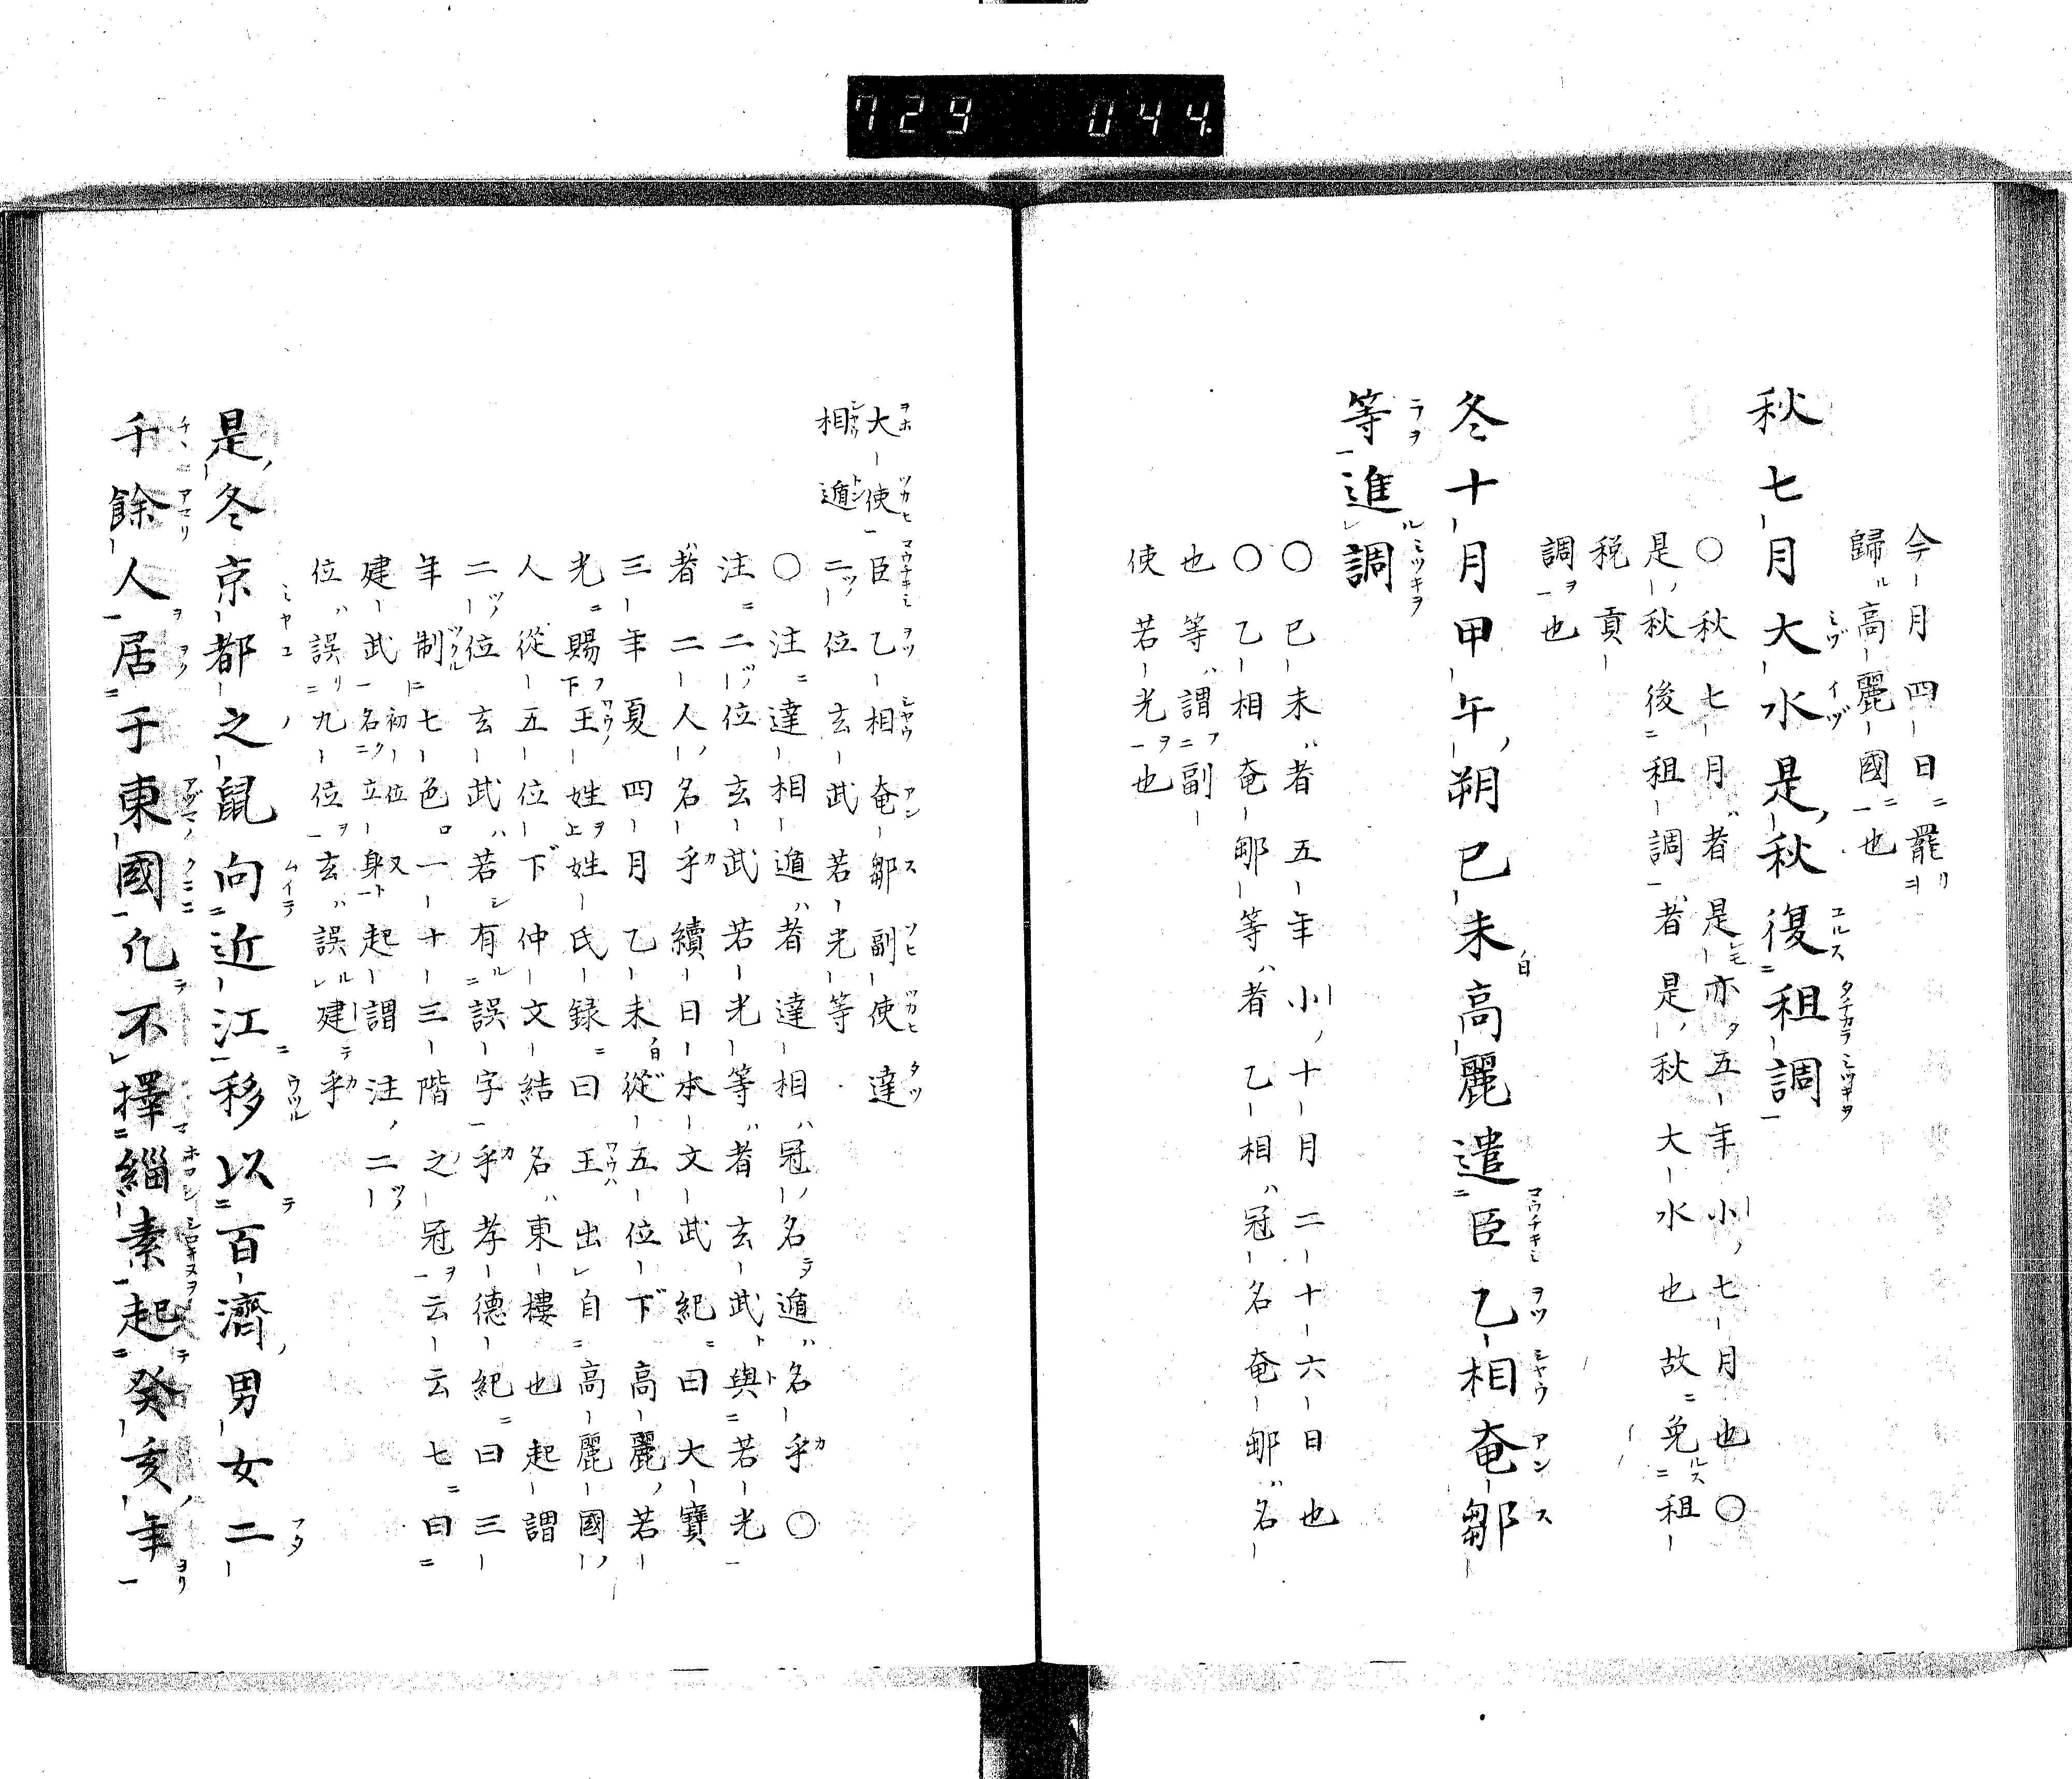 729 044
今月四日罷
歸高麗國也
秋七月大水是秋復租調
○秋七月者是亦五年小七月也○
是秋後租調者是秋大水也故免租
税貢
調也
冬十月甲午朔己未高麗遣臣乙相奄鄒
等進調
○己未者五年小十月二十六日也
○乙相奄鄒等者乙相冠名奄鄒名
也等謂副
使若光也
大使臣乙相奄鄒副使達
相遁二位玄武若光等
○注達相遁者達相冠名遁名乎○
注二位玄武若光等者玄武與若光
者二人名乎續日本文武紀曰大寶
三年夏四月乙未從五位下高麗若
光賜王姓姓氏録曰王出自高麗國
人從五位下仲文結名東樓也起謂
二位玄武若有誤字乎孝德紀曰三
年制七色一十三階之冠云云七曰
建武初位又名立身起謂注二
位誤九位玄誤建乎
是冬京都之鼠向近江移以百濟男女二
千餘人居于東國凢不擇緇素起癸亥年